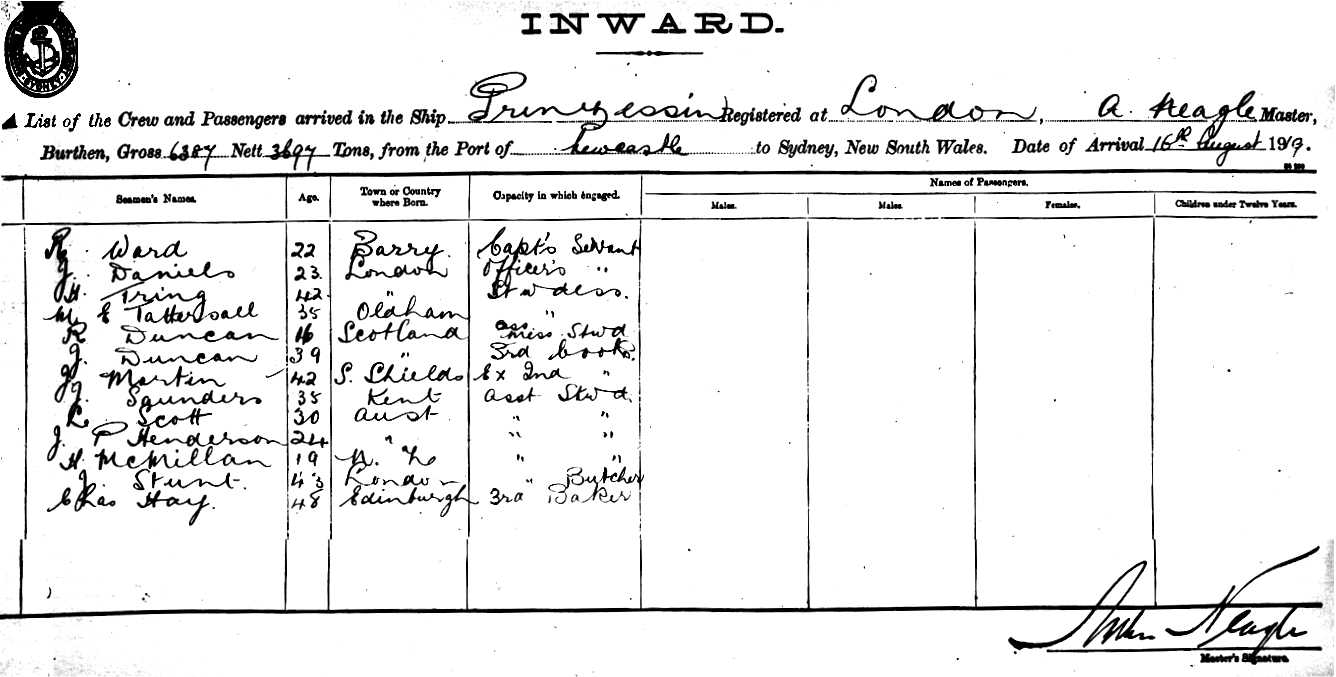 SYDNEY
INWARD.
List of the Crew and Passengers arrived in the Ship Prinzessin Registered at London, A. Neagle Master,
Burthen, Gross 6387 Nett 3697 Tons, from the Port of Newcastle to Sydney, New South Wales. Date of Arrival 16th August 1919.
Seamen's Names. Age. Town or Country where Born. Capacity in which engaged. Names of Passengers.
Males. Males. Females. Children under Twelve Years.
R. Ward 22 Barry. Capt's Servant
J. Daniels 23. London Officer's "
H. Tring 42 " Stwdess.
M. E Tattersall 35 Oldham "
R Duncan 16 Scotland ass Mess Stwd
J. Duncan 39 " 3rd Cooks.
J. Martin 42 S. Shields Ex 2nd "
J. Saunders 35 Kent asst Stwd.
L. Scott 30 aust " "
J. P Henderson 24 " " "
H. McMillan 19 N. Z " "
J. Stunt. 43 London " Butcher
Chas Hay. 48 Edinburgh 3rd Baker
Neagle
Master's Signature.